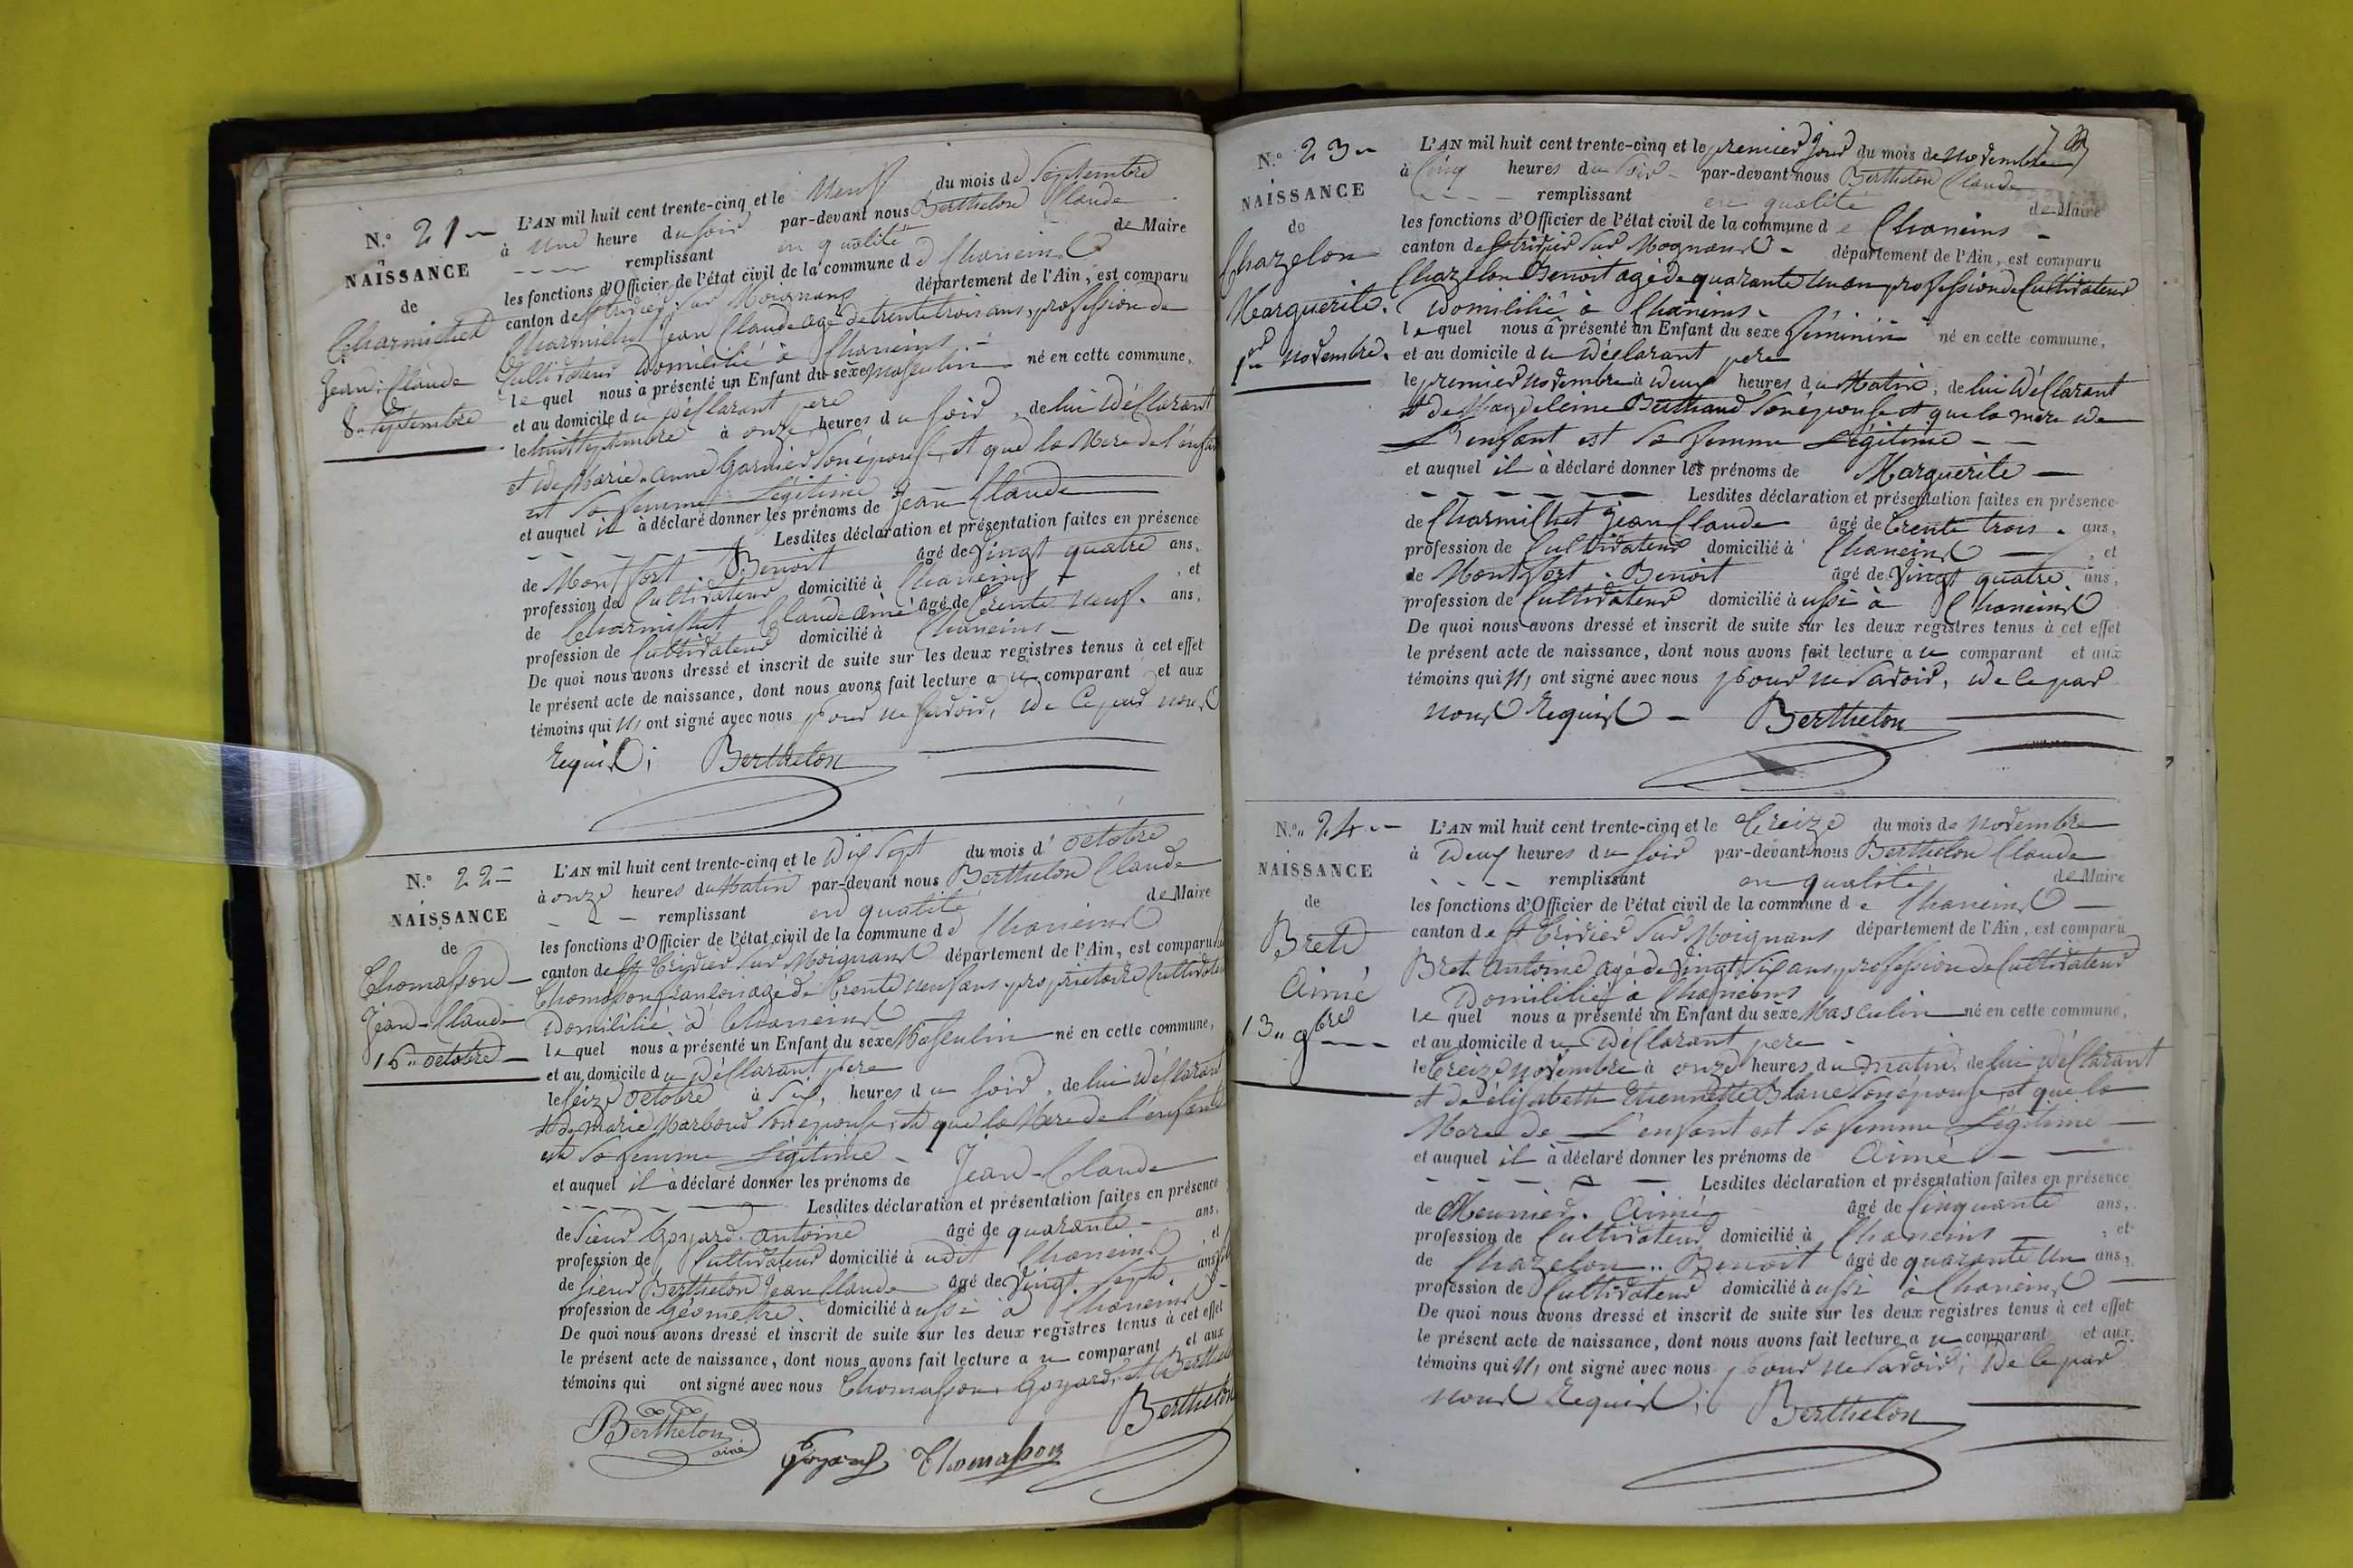 N.° 21
NAISSANCE
de
Charmichet
Jean Claude
8 Septembre
L'AN mil huit cent trente-cinq et le Neuf du mois de Septembre
à une heure du soir par-devant nous Berthelon Claude
remplissant en qualité de Maire
les fonctions d'Officier de l'état civil de la commune de Chaneins
canton de St Trivier sur Moignans département de l'Ain, est comparu
Charmichet Jean Claude agé de trente trois ans, profession de
Cultivateur domicilié à Chaneins
lequel nous à présenté un Enfant du sexe Masculin né en cette commune,
et au domicile du déclarant pere
le huit Septembre à onze heures du soir, de lui déclarant
et de Marie anne Garnier son épouse, et que la Mere de l'enfant
est sa femme Légitime
et auquel il à déclaré donner les prénoms de Jean Claude
Lesdites déclaration et présentation faites en présence
de Montfort Benoit âgé de Vingt quatre ans,
profession de Cultivateur domicilié à Chaneins, et
de Charmichet Claude ainé âgé de Trente Neuf ans,
profession de Cultivateur domicilié à Chaneins
De quoi nous avons dressé et inscrit de suite sur les deux registres tenus à cet effet
le présent acte de naissance, dont nous avons fait lecture au comparant et aux
témoins qui N'ont signé avec nous pour ne Savoir, de ce par nous
Requis; Berthelon
N.° 22
NAISSANCE
de
Thomasson
Jean-Claude
16 octobre
L'AN mil huit cent trente-cinq et le Dix Sept du mois d'octobre
à onze heures du Matin par-devant nous Berthelon Claude
remplissant en qualité de Maire
les fonctions d'Officier de l'état civil de la commune de Chaneins
canton de St Trivier sur Moignans département de l'Ain, est comparu
Thomasson agé de Trente neuf ans, propriétaire Cultivateur
Domicilié à Chaneins
lequel nous a présenté un Enfant du sexe Masculin né en cette commune,
et au domicile du déclarant pere
le Seize octobre à Six, heures du soir, de lui déclarant
et de marie Marboud son épouse, et que la Mere de l'enfant
est sa femme Légitime
et auquel il à déclaré donner les prénoms de Jean-Claude
Lesdites déclaration et présentation faites en présence
de Sieur Goyard antoine âgé de quarante ans,
profession de Cultivateur domicilié à udit Chaneins, et
de Sieur Berthelon Jean Claude âgé de Vingt Sept ans,
profession de Géometre domicilié à ussi à Chaneins
De quoi nous avons dressé et inscrit de suite sur les deux registres tenus à cet effet
le présent acte de naissance, dont nous avons fait lecture au comparant et aux
témoins qui ont signé avec nous Thomasson, Goyard, et Berthelon
Berthelon ainé Goyard Thomasson Berthelon
N.° 23
NAISSANCE
de
Chazelon
Marguerite
1er Novembre
L'AN mil huit cent trente-cinq et le premier Jour du mois de Novembre
à Cinq heures du Soir par-devant nous Berthelon Claude
remplissant en qualité de Maire
les fonctions d'Officier de l'état civil de la commune de Chaneins
canton de St Trivier sur Mognans département de l'Ain, est comparu
Chazelon Benoit agé de quarante Un an, profession de Cultivateur
Domicilié à Chaneins
lequel nous à présenté un Enfant du sexe Féminin né en cette commune,
et au domicile du déclarant pere
le premier Novembre à deux heures du Matin, de lui déclarant
et de Magdeleine Berthaud son épouse et que la mere de
L'enfant est sa femme Légitime
et auquel il à déclaré donner les prénoms de Marguerite
Lesdites déclaration et présentation faites en présence
de Charmichet Jean Claude âgé de Trente trois ans,
profession de Cultivateur domicilié à Chaneins, et
de Montfort Benoit âgé de Vingt quatre ans,
profession de Cultivateur domicilié à ussi à Chaneins
De quoi nous avons dressé et inscrit de suite sur les deux registres tenus à cet effet
le présent acte de naissance, dont nous avons fait lecture au comparant et aux
témoins qui N'ont signé avec nous pour ne Savoir, de ce par
nous Requis Berthelon
N.° 24
NAISSANCE
de
Bret
Aimé
13 9bre
L'AN mil huit cent trente-cinq et le Treize du mois de Novembre
à Deux heures du soir par-devant nous Berthelon Claude
remplissant en qualité de Maire
les fonctions d'Officier de l'état civil de la commune de Chaneins
canton de St Trivier sur Moignans département de l'Ain, est comparu
Bret antoine agé de Vingt Six ans, profession de Cultivateur
Domicilié à Chaneins
lequel nous a présenté un Enfant du sexe Masculin né en cette commune,
et au domicile du Déclarant pere
le Treize Novembre à onze heures du matin, de lui déclarant
et de élisabeth Etiennette Blanc son épouse, et que la
Mere de L'enfant est sa femme Légitime
et auquel il à déclaré donner les prénoms de Aimé
Lesdites déclaration et présentation faites en présence
de Meunier Aimé âgé de Cinquante ans,
profession de Cultivateur domicilié à Chaneins, et
de Chazelon Benoit âgé de quarante Un ans,
profession de Cultivateur domicilié à ussi à Chaneins
De quoi nous avons dressé et inscrit de suite sur les deux registres tenus à cet effet
le présent acte de naissance, dont nous avons fait lecture au comparant et aux
témoins qui N'ont signé avec nous pour ne Savoir; De ce par
nous Requis; Berthelon